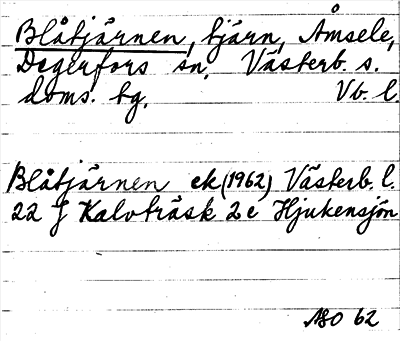 Blåtjärnen, tjärn, Åmsele,
Degerfors sn, Västerb. s.
doms. tg, Vb. l.
Blåtjärnen ek (1962) Västerb. l.
22 J Kalvträsk 2 e Hjukensjön
62